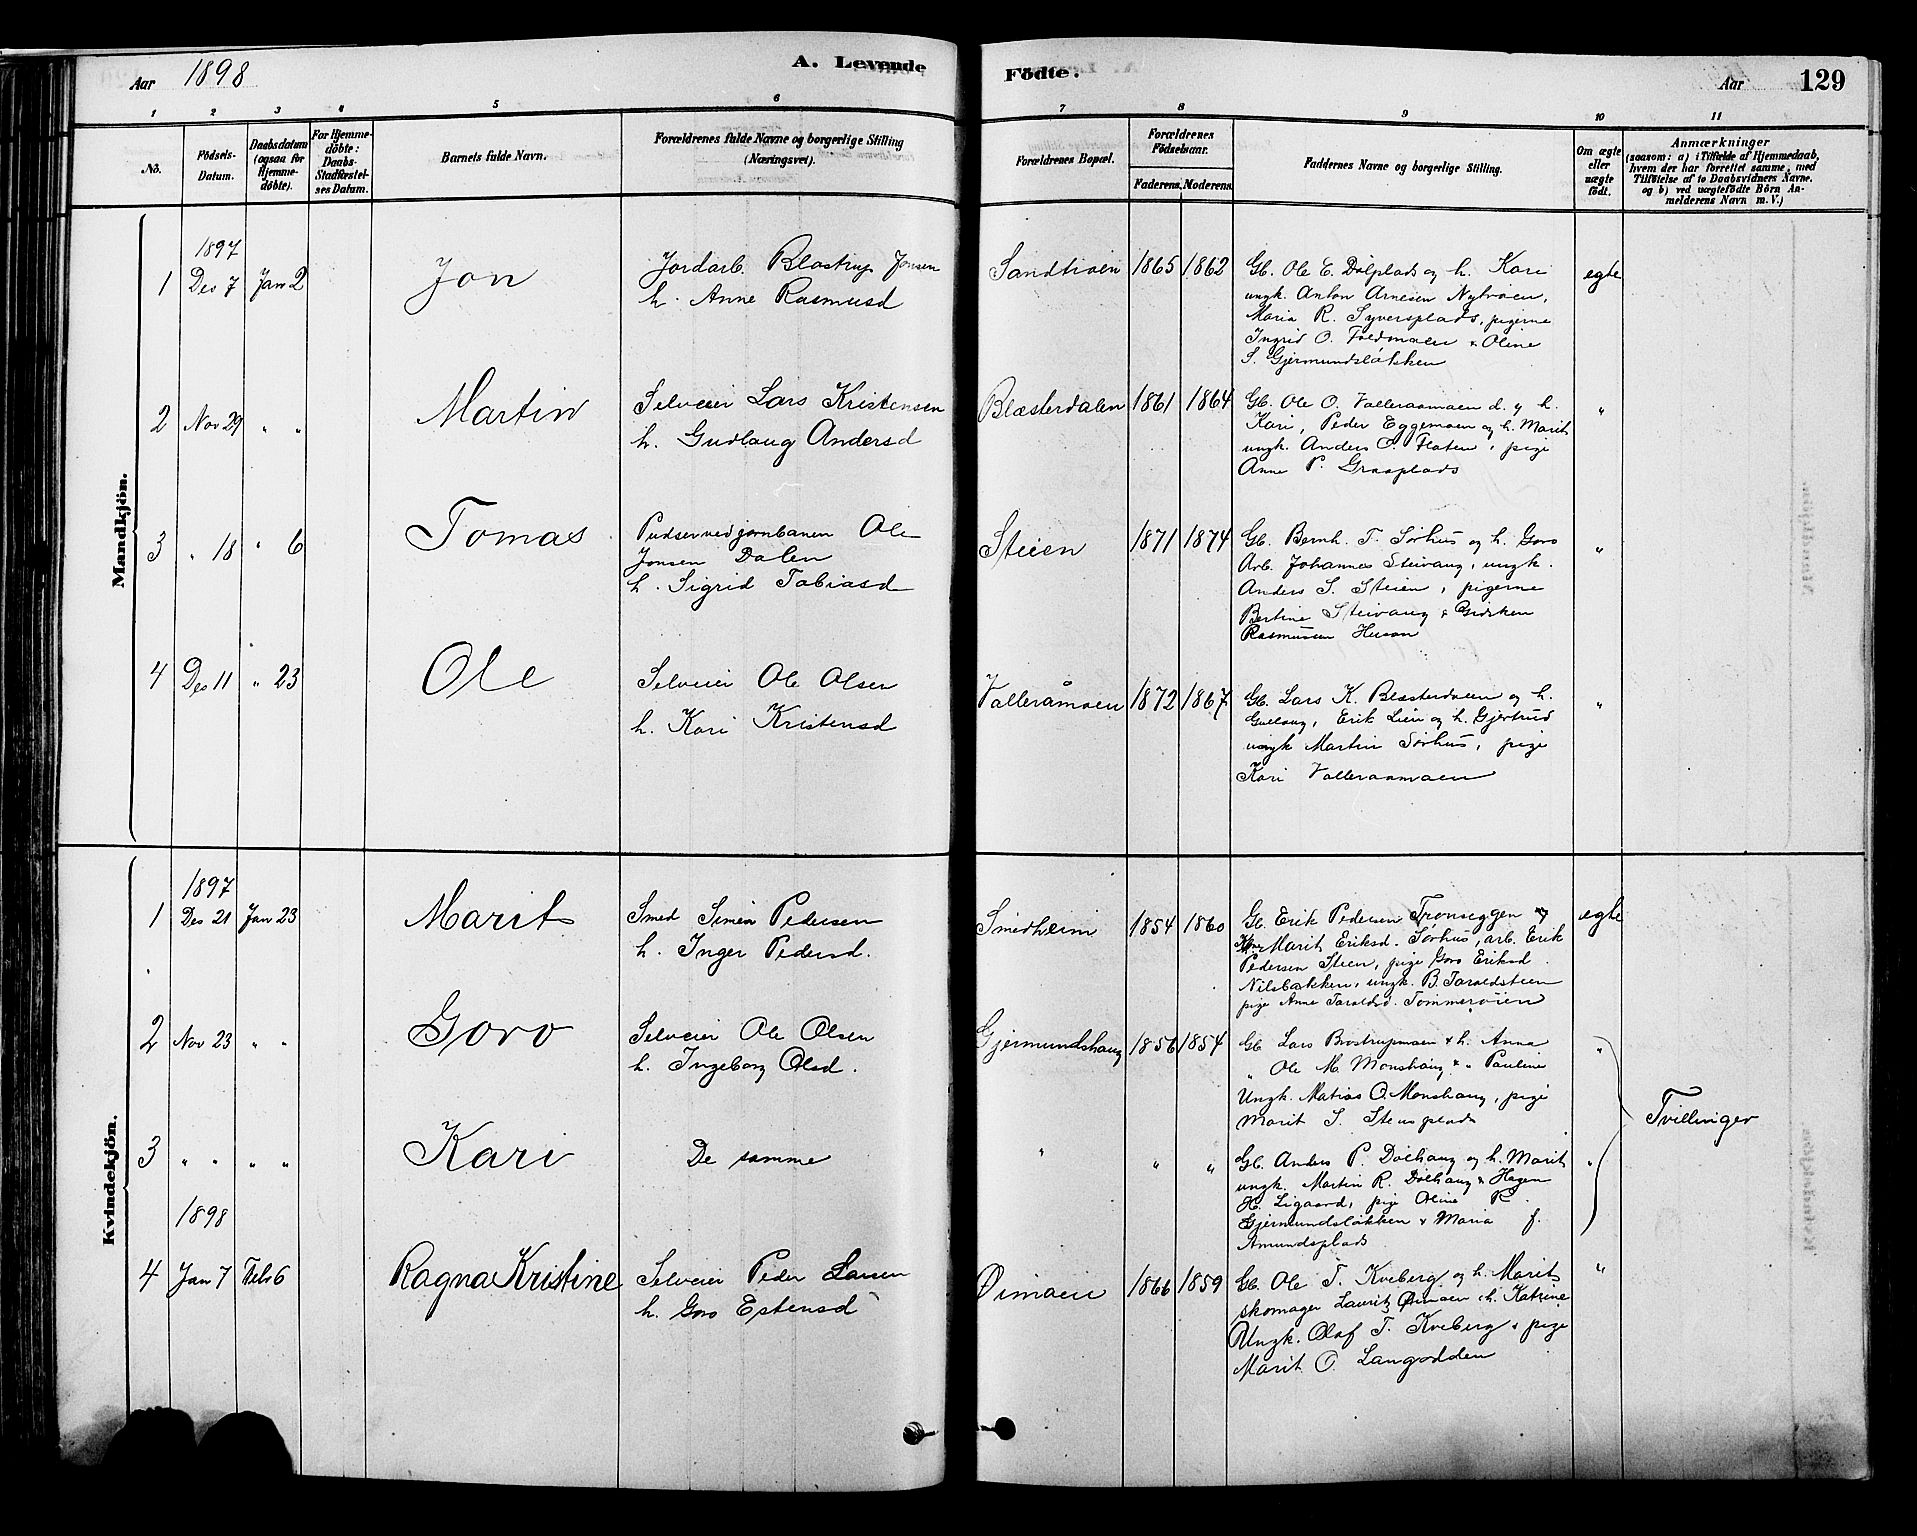 Aar 1898
A. Levende
Födte.
Aar
129
1 2 3 4 5 6 7 8 9 10 11
No.
Födsels-
Datum.
Daabsdatum
(ogsaa for
Hjemme-
döbte).
For Hjemme-
döbte:
Daabs-
Stadfæstel-
ses Datum.
Barnets fulde Navn.
Forældrenes fulde Navne og borgerlige Stilling
(Næringsvei).
Forældrenes Bopæl.
Forældrenes
Födselsaar.
Faderens. Moderens.
Faddernes Navne og borgerlige Stilling.
Om ægte
eller
uægte
födt.
Anmærkninger
(saasom: a) i Tilfælde af Hjemmedaab,
hvem der har forrettet samme, med
Tilföielse af to Daabsvidners Navne.
og b) ved uægtefödte Börn An-
melderens Navn m. V.)
Mandkjön.
1897
1 Des 7 Jan 2
Jon
Jordarb. Blostrup Jonsen
h. Anne Rasmusd
Sandtröen 1865 1862
Gb. Ole E. Dölplads og h. Kari
ungk. Anton Arnesen Nytröen,
Maria R. Syversplads, pigerne
Ingrid O. Foldmoen & Oline
S. Gjermundsløkken
egte
2 Nov 29 " "
Martin
Selveier Lars Kristensen
h. Gudlaug Andersd
Blæsterdalen 1861 1864
Gb. Ole O. Valleraamoen d. y h.
Kari, Peder Eggemoen og h. Marit
ungk. Anders O. Flaten, pige
Anne P. Graaplads
"
3 " 18 " 6
Tomas
Pudser ved jernbanen Ole
Jonsen Dalen
h. Sigrid Tobiasd
Steien 1871 1874
Gb. Bernh. T. Sørhus og h. Goro
Arb. Johannes Steivang, ungk.
Anders S. Steien, pigerne
Bertine Steivang &
Rasmussen
"
4 Des 11 " 23
Ole
Selveier Ole Olsen
h. Kari Kristensd
Valleråmoen 1872 1867
Gb. Lars K. Blæsterdalen og h.
Gullaug, Erik Lien og h. Gjertrud
ungk Martin Sørhus, pige
Kari Valleraamoen
"
Kvindekjön.
1897
1 Des 21 Jan 23
Marit
Smed Simen Pedersen
h. Inger Pedersd.
Smedheim 1854 1860
Gb. Erik Pedersen Tronseggen og
Kone Marit Eriksd. Sørhus, arb. Erik
Pedersen Steien, pige Goro Eriksd.
Nilsbakken, ungk. B. Taraldsteen
pige Anne Taraldsd. Tommerøien
egte
2 Nov 23 " "
Goro
Selveier Ole Olsen
h. Ingeborg Olsd.
Gjermundshaug 1856 1854
Gb. Lars Brostrupmoen & h. Anna
" Ole M. Monshaug & " Pauline
Ungk. Matias O. Monshaug, pige
Marit S. Steusplads
"
Tvillinger
3 " " " "
Kari
De samme
" " "
Gb. Anders P. Dölhaug og h. Marit
ungk. Martin R. Dölhaug & Hagen
H. Ligaard, pige Oline R.
Gjermundsløkken & Maria f.
Amundsplads
"
1898
4 Jan 7 Feb 6
Ragna Kristine
Selveier Peder Larsen
h. Goro Estensd
Øimoen 1866 1859
Gb. Ole T. Kveberg og h. Marit
skomager Laurits Øimoen, h. Katrine
Ungk. Olaf T. Kveberg & pige
Marit O. Langodden
"